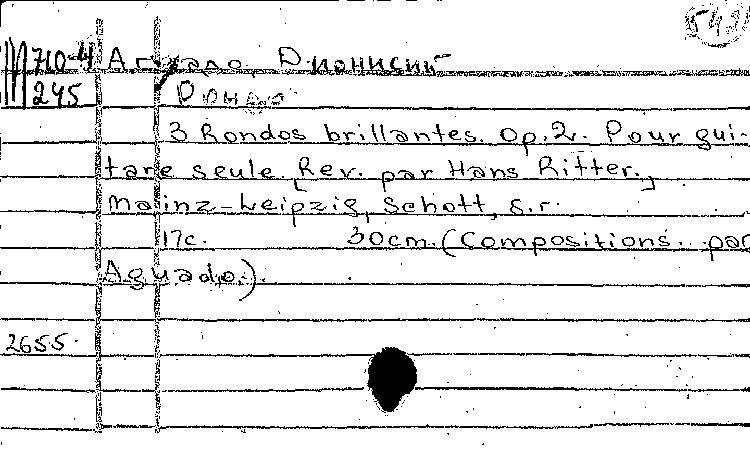 М 710-4 Агуадо, Дионисий
245 Рондо
3 Rondos brillantes. Op. 2. Pour gui-
tare seule. [Rev. par Hans Ritter.]
Mainz-Leipzig, Schott, s. г.
17с. 30cm. (Compositions.. par
Aguado.)
2655.